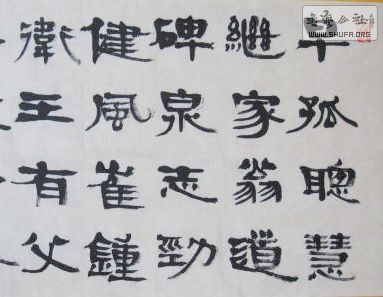 孤聰慧
繼家翁道
碑泉志勁
健風崔鍾
衛王有父
公社
WWW.SHUFA.ORG